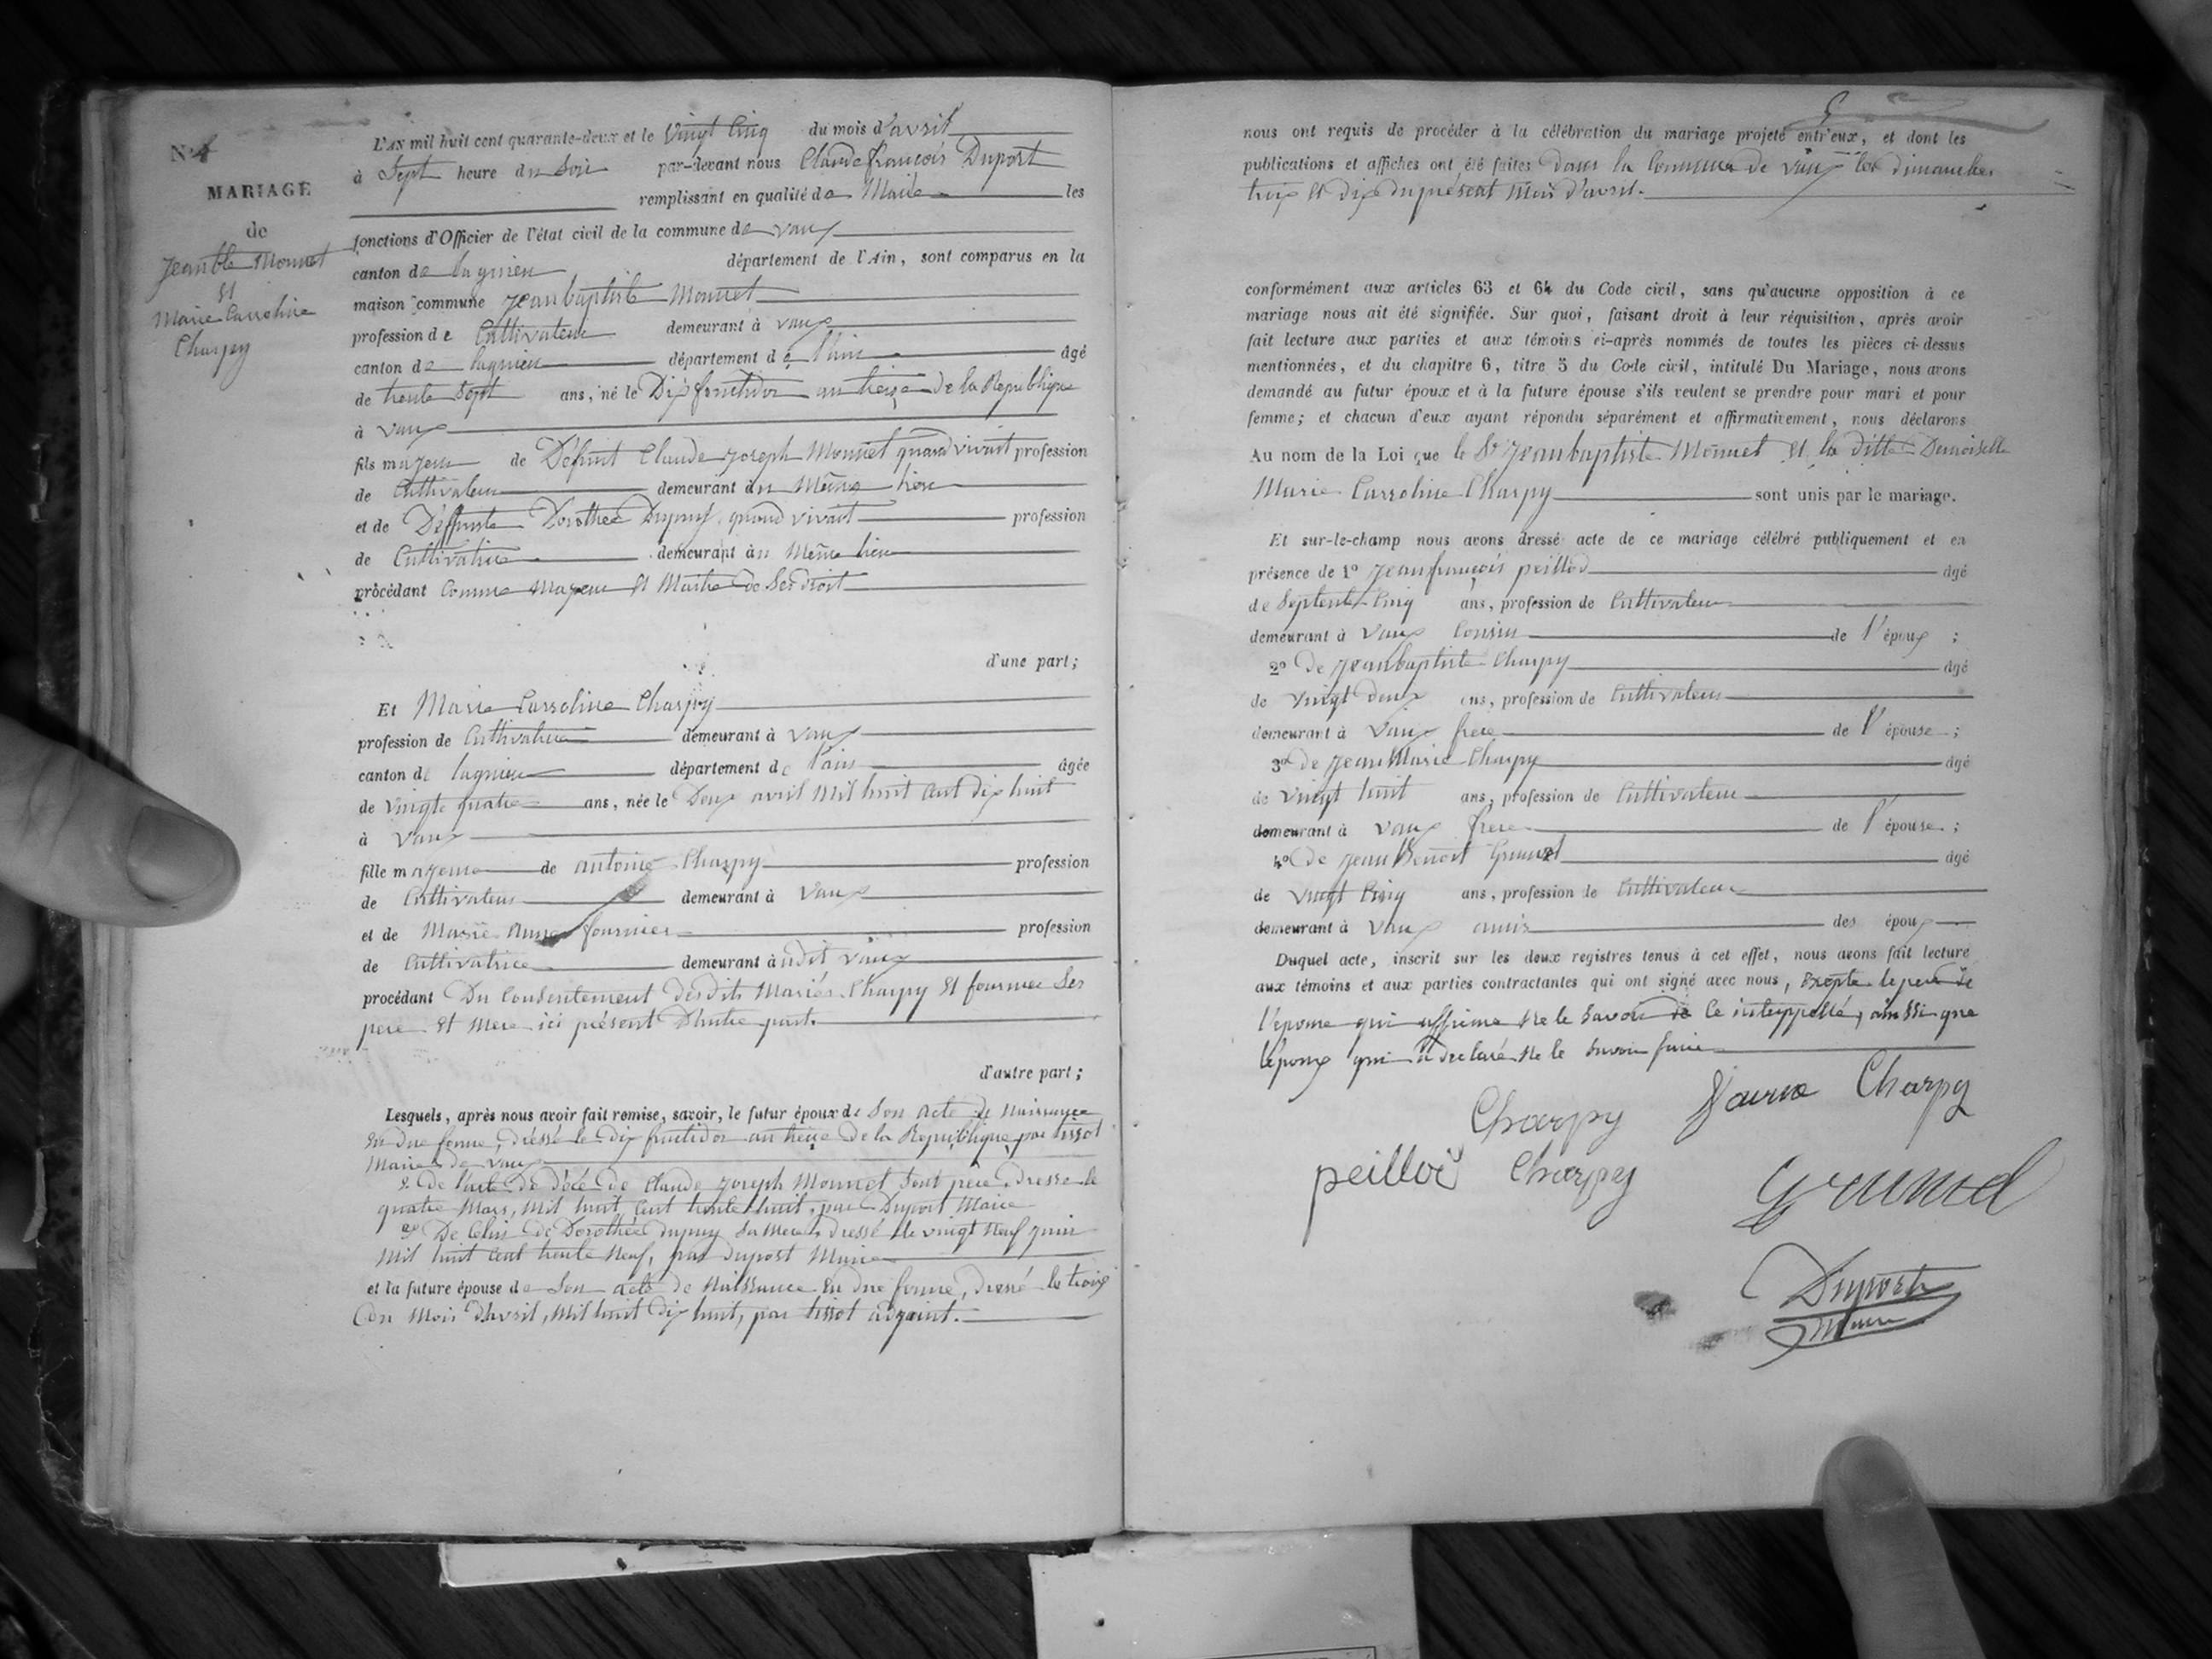 N° 4
MARIAGE
de
Jean Bte Monnet
et
Marie Carroline
Charpy
L'AN mil huit cent quarante-deux et le vingt cinq du mois d'avril
à Sept heure du Soir par-devant nous Claude françois Duport
remplissant en qualité de Maire les
fonctions d'Officier de l'état civil de la commune de vaux
canton de lagnieu département de l'Ain, sont comparus en la
maison commune Jean baptiste Monnet
profession de Cultivateur demeurant à vaux
canton de lagnieu département de l'ain âgé
de trente Sept ans, né le Dix fructidor an treize de la Republique
à vaux
fils majeur de Défunt Claude Joseph Monnet quand vivait profession
de Cultivateur demeurant au Même lieu
et de Déffunte Dorothée Dupuy quand vivait profession
de Cultivatrice demeurant au Même lieu
procédant Comme Majeur et Maitre de Ses droit
d'une part;
Et Marie Carroline Charpy
profession de Cultivatrice demeurant à vaux
canton de lagnieu département de l'ain âgée
de vingte quatre ans, née le Deux avril Mil huit Cent dix huit
à vaux
fille majeure de antoine Charpy profession
de Cultivateur demeurant à vaux
et de Marie Anne fournier profession
de Cultivatrice demeurant audit vaux
procédant Du Consentement desdits Mariés Charpy et fournier Ses
pere et Mere ici présent D'autre part.
d'autre part;
Lesquels, après nous avoir fait remise, savoir, le futur époux de Son acte de Naissance
en due forme, dressé le dix fructidor an treize de la République par tissot
Maire de vaux
2. De l'acte de décé de Claude Joseph Monnet Sont père, dressé le
quatre Mars, Mil huit Cent trente huit, par Duport Maire
3° De Celui de Dorothée dupuy Sa Mere, dressé le vingt Neuf juin
Mil huit Cent trente Neuf, par Duport Maire
et la future épouse de Son acte de Naissance en due forme, dressé le trois
Du Mois d'avril, Mil huit dix huit, par tissot adjoint.
5
nous ont requis de procéder à la célébration du mariage projeté entr'eux, et dont les
publications et affiches ont été faites Dans la Commune de vaux les dimanches
troix et dix du présent Mois d'avril.
conformément aux articles 63 et 64 du Code civil, sans qu'aucune opposition à ce
mariage nous ait été signifiée. Sur quoi, faisant droit à leur réquisition, après avoir
fait lecture aux parties et aux témoins ci-après nommés de toutes les pièces ci-dessus
mentionnées, et du chapitre 6, titre 5 du Code civil, intitulé Du Mariage, nous avons
demandé au futur époux et à la future épouse s'ils veulent se prendre pour mari et pour
femme; et chacun d'eux ayant répondu séparément et affirmativement, nous déclarons
Au nom de la Loi que le Sr Jean baptiste Monnet et la ditte Demoiselle
Marie Carroline Charpy sont unis par le mariage.
Et sur-le-champ nous avons dressé acte de ce mariage célébré publiquement et en
présence de 1° Jean françois peillod âgé
de Septente Cinq ans, profession de Cultivateur
demeurant à Vaux Cousin de l'époux ;
2° De Jean baptiste Charpy âgé
de vingt deux ans, profession de Cultivateur
demeurant à Vaux frere de l'épouse ;
3° de Jean Marie Charpy âgé
de vingt huit ans, profession de Cultivateur
demeurant à vaux frere de l'épouse ;
4° De Jean Benoit Grumet âgé
de vingt Cinq ans, profession de Cultivateur
demeurant à Vaux amis des époux
Duquel acte, inscrit sur les deux registres tenus à cet effet, nous avons fait lecture
aux témoins et aux parties contractantes qui ont signé avec nous, Excepte le pere de
l'épouse qui affirme Ne le Savoir de Ce interppellé, ainssi que
l'époux qui a declaré Ne le Savoir faire
Charpy Charpy
peillod Charpy Grumel
Duport
Maire